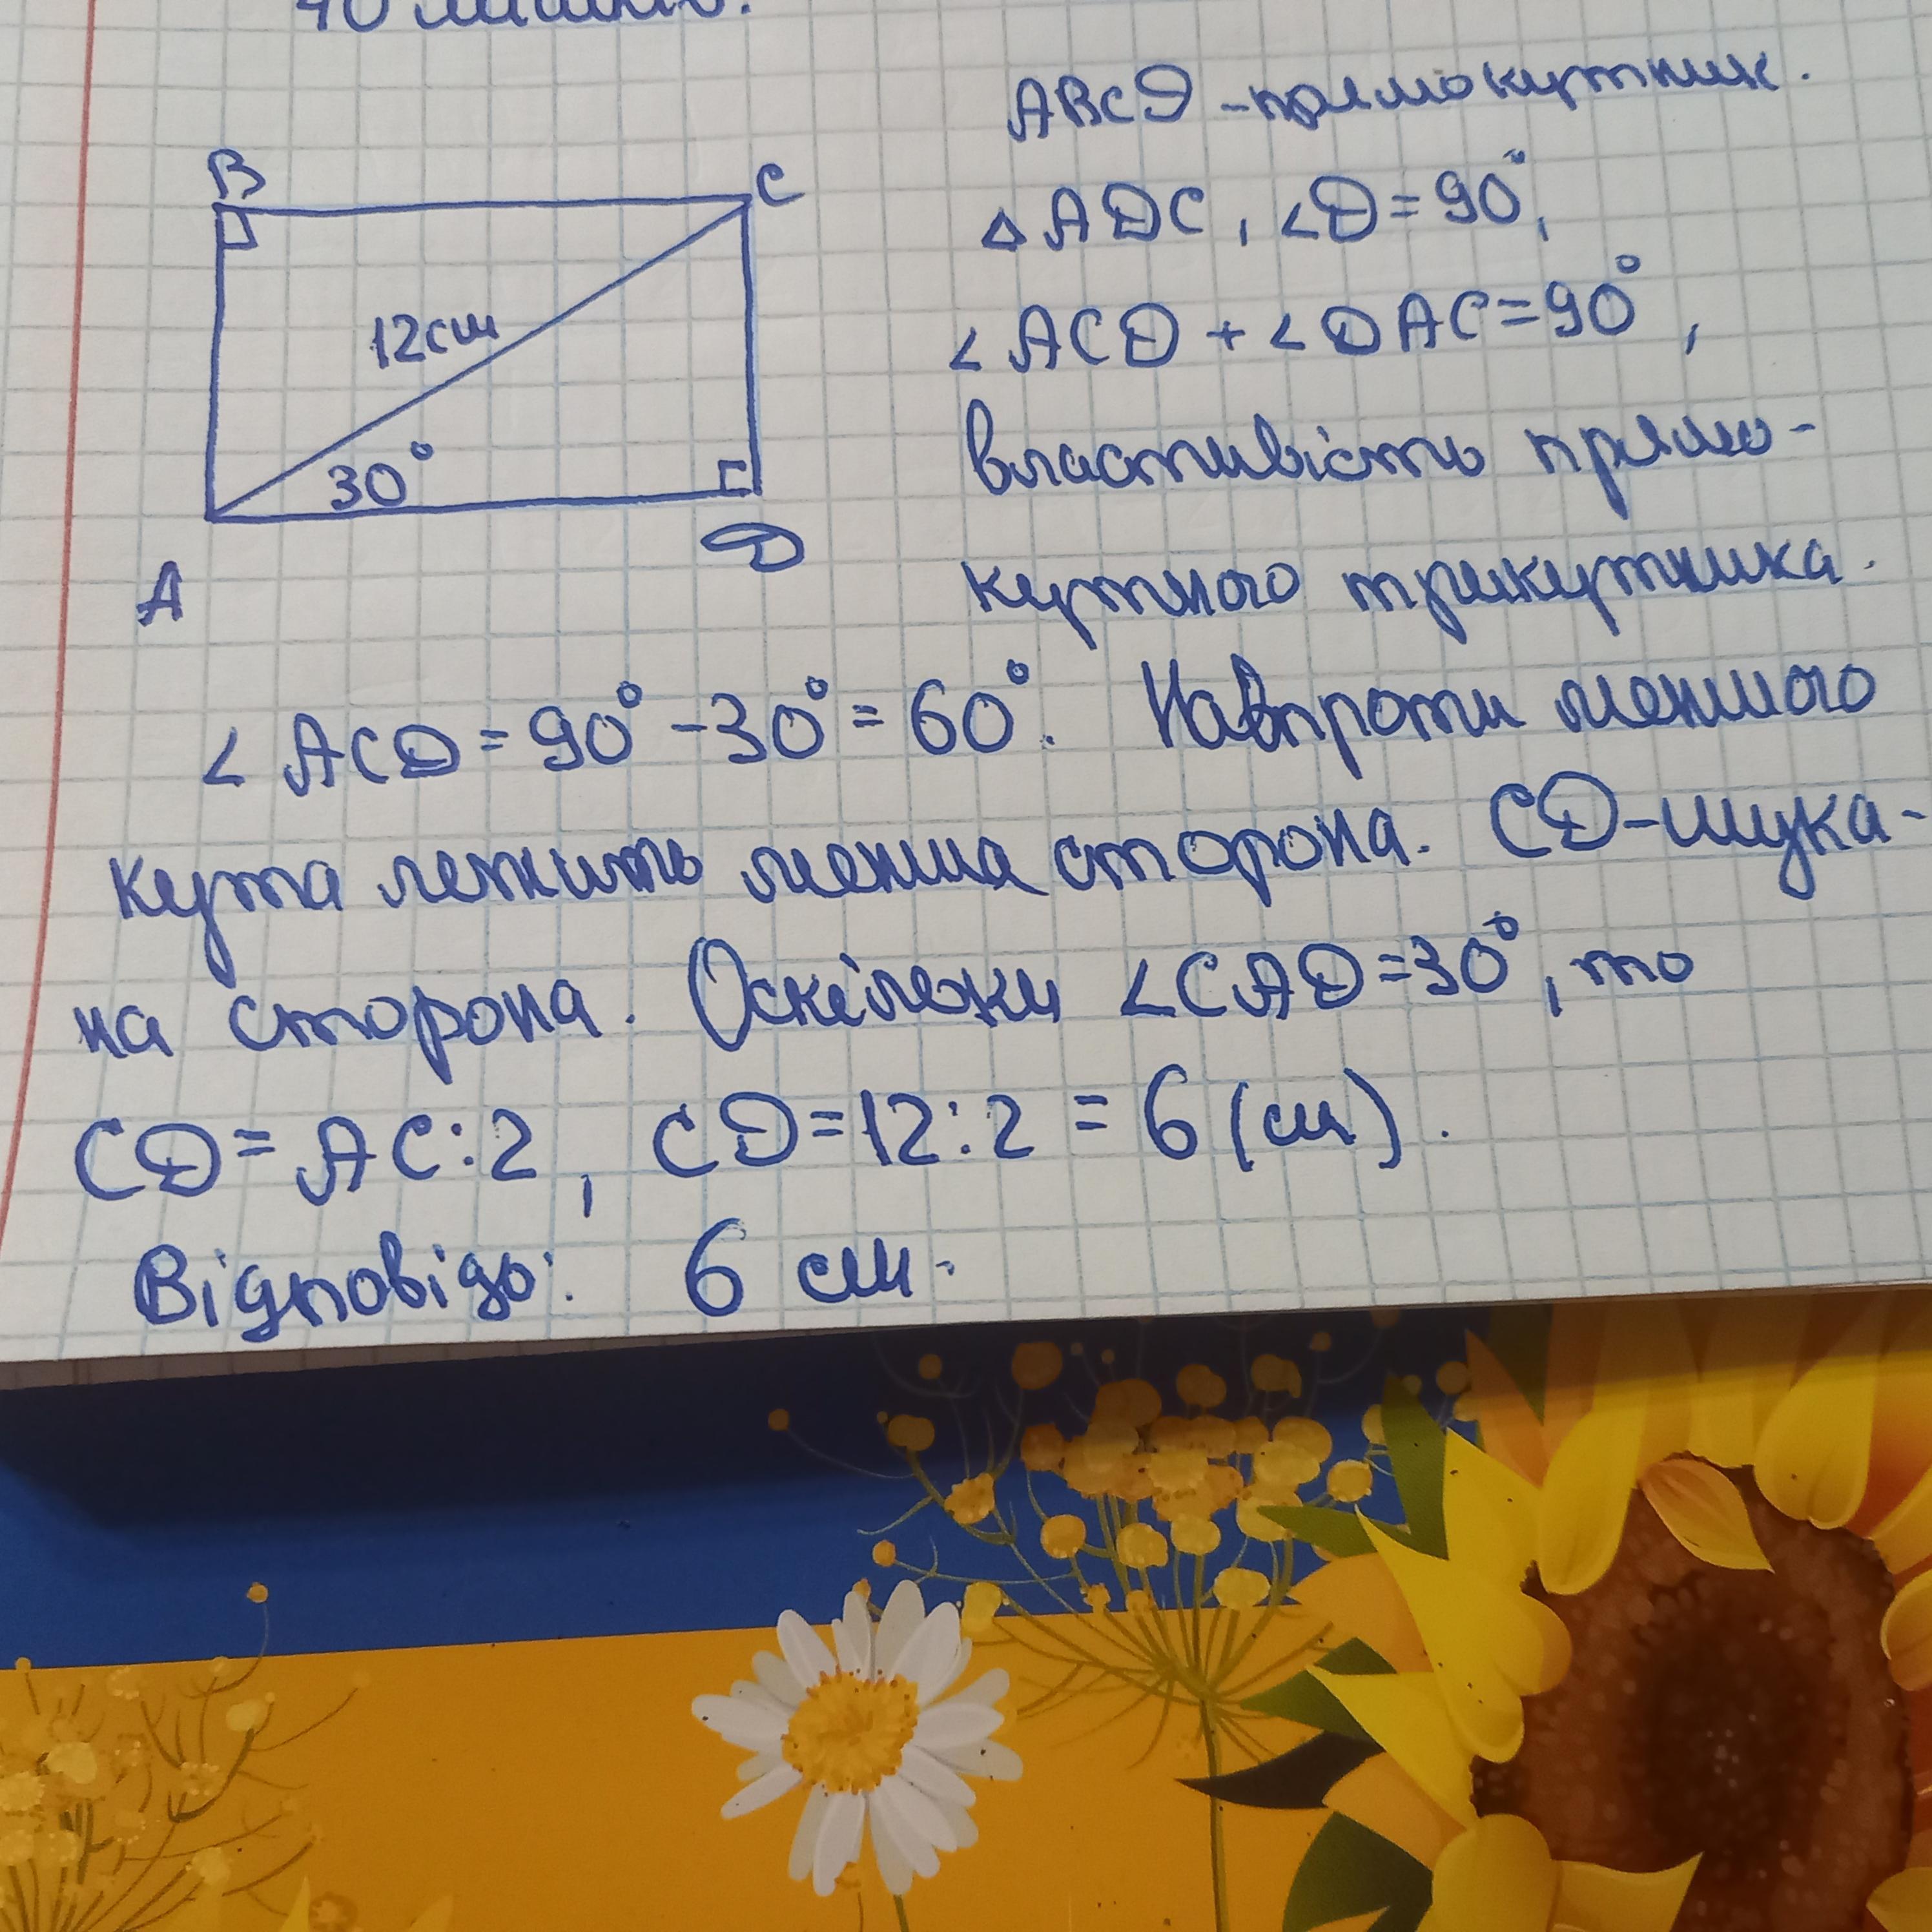 ABCD - прямокутник.
B
C
△ ADC, ∠D = 90°,
12см
∠ ACD + ∠DAC = 90°,
властивість прямо-
30°
D
кутного трикутника.
A
∠ ACD = 90° - 30° = 60°. Навпроти меншого
кута лежить менша сторона. CD - шука-
на сторона. Оскільки ∠CAD = 30°, то
CD = AC : 2, CD = 12 : 2 = 6 (см).
Відповідь: 6 см.